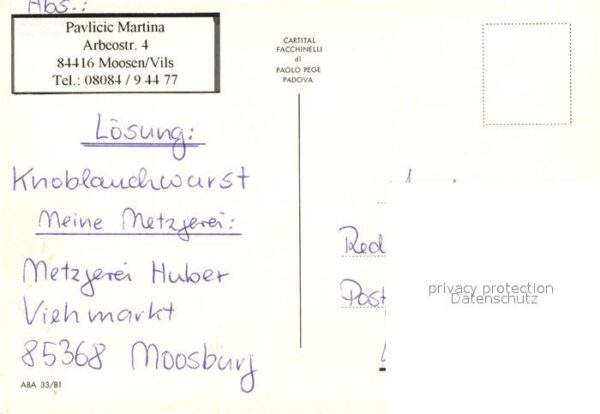 Abs.:
Pavlicic Martina
Arbeostr. 4
84416 Moosen/Vils
Tel.: 08084 / 9 44 77
Lösung:
Knoblauchwurst
Meine Metzgerei:
Metzgerei Huber
Viehmarkt
85368 Moosburg
ABA 33/81
CARTITAL
FACCHINELLI
di
PAOLO PEGE
PADOVA
Red
Post
privacy protection
Datenschutz